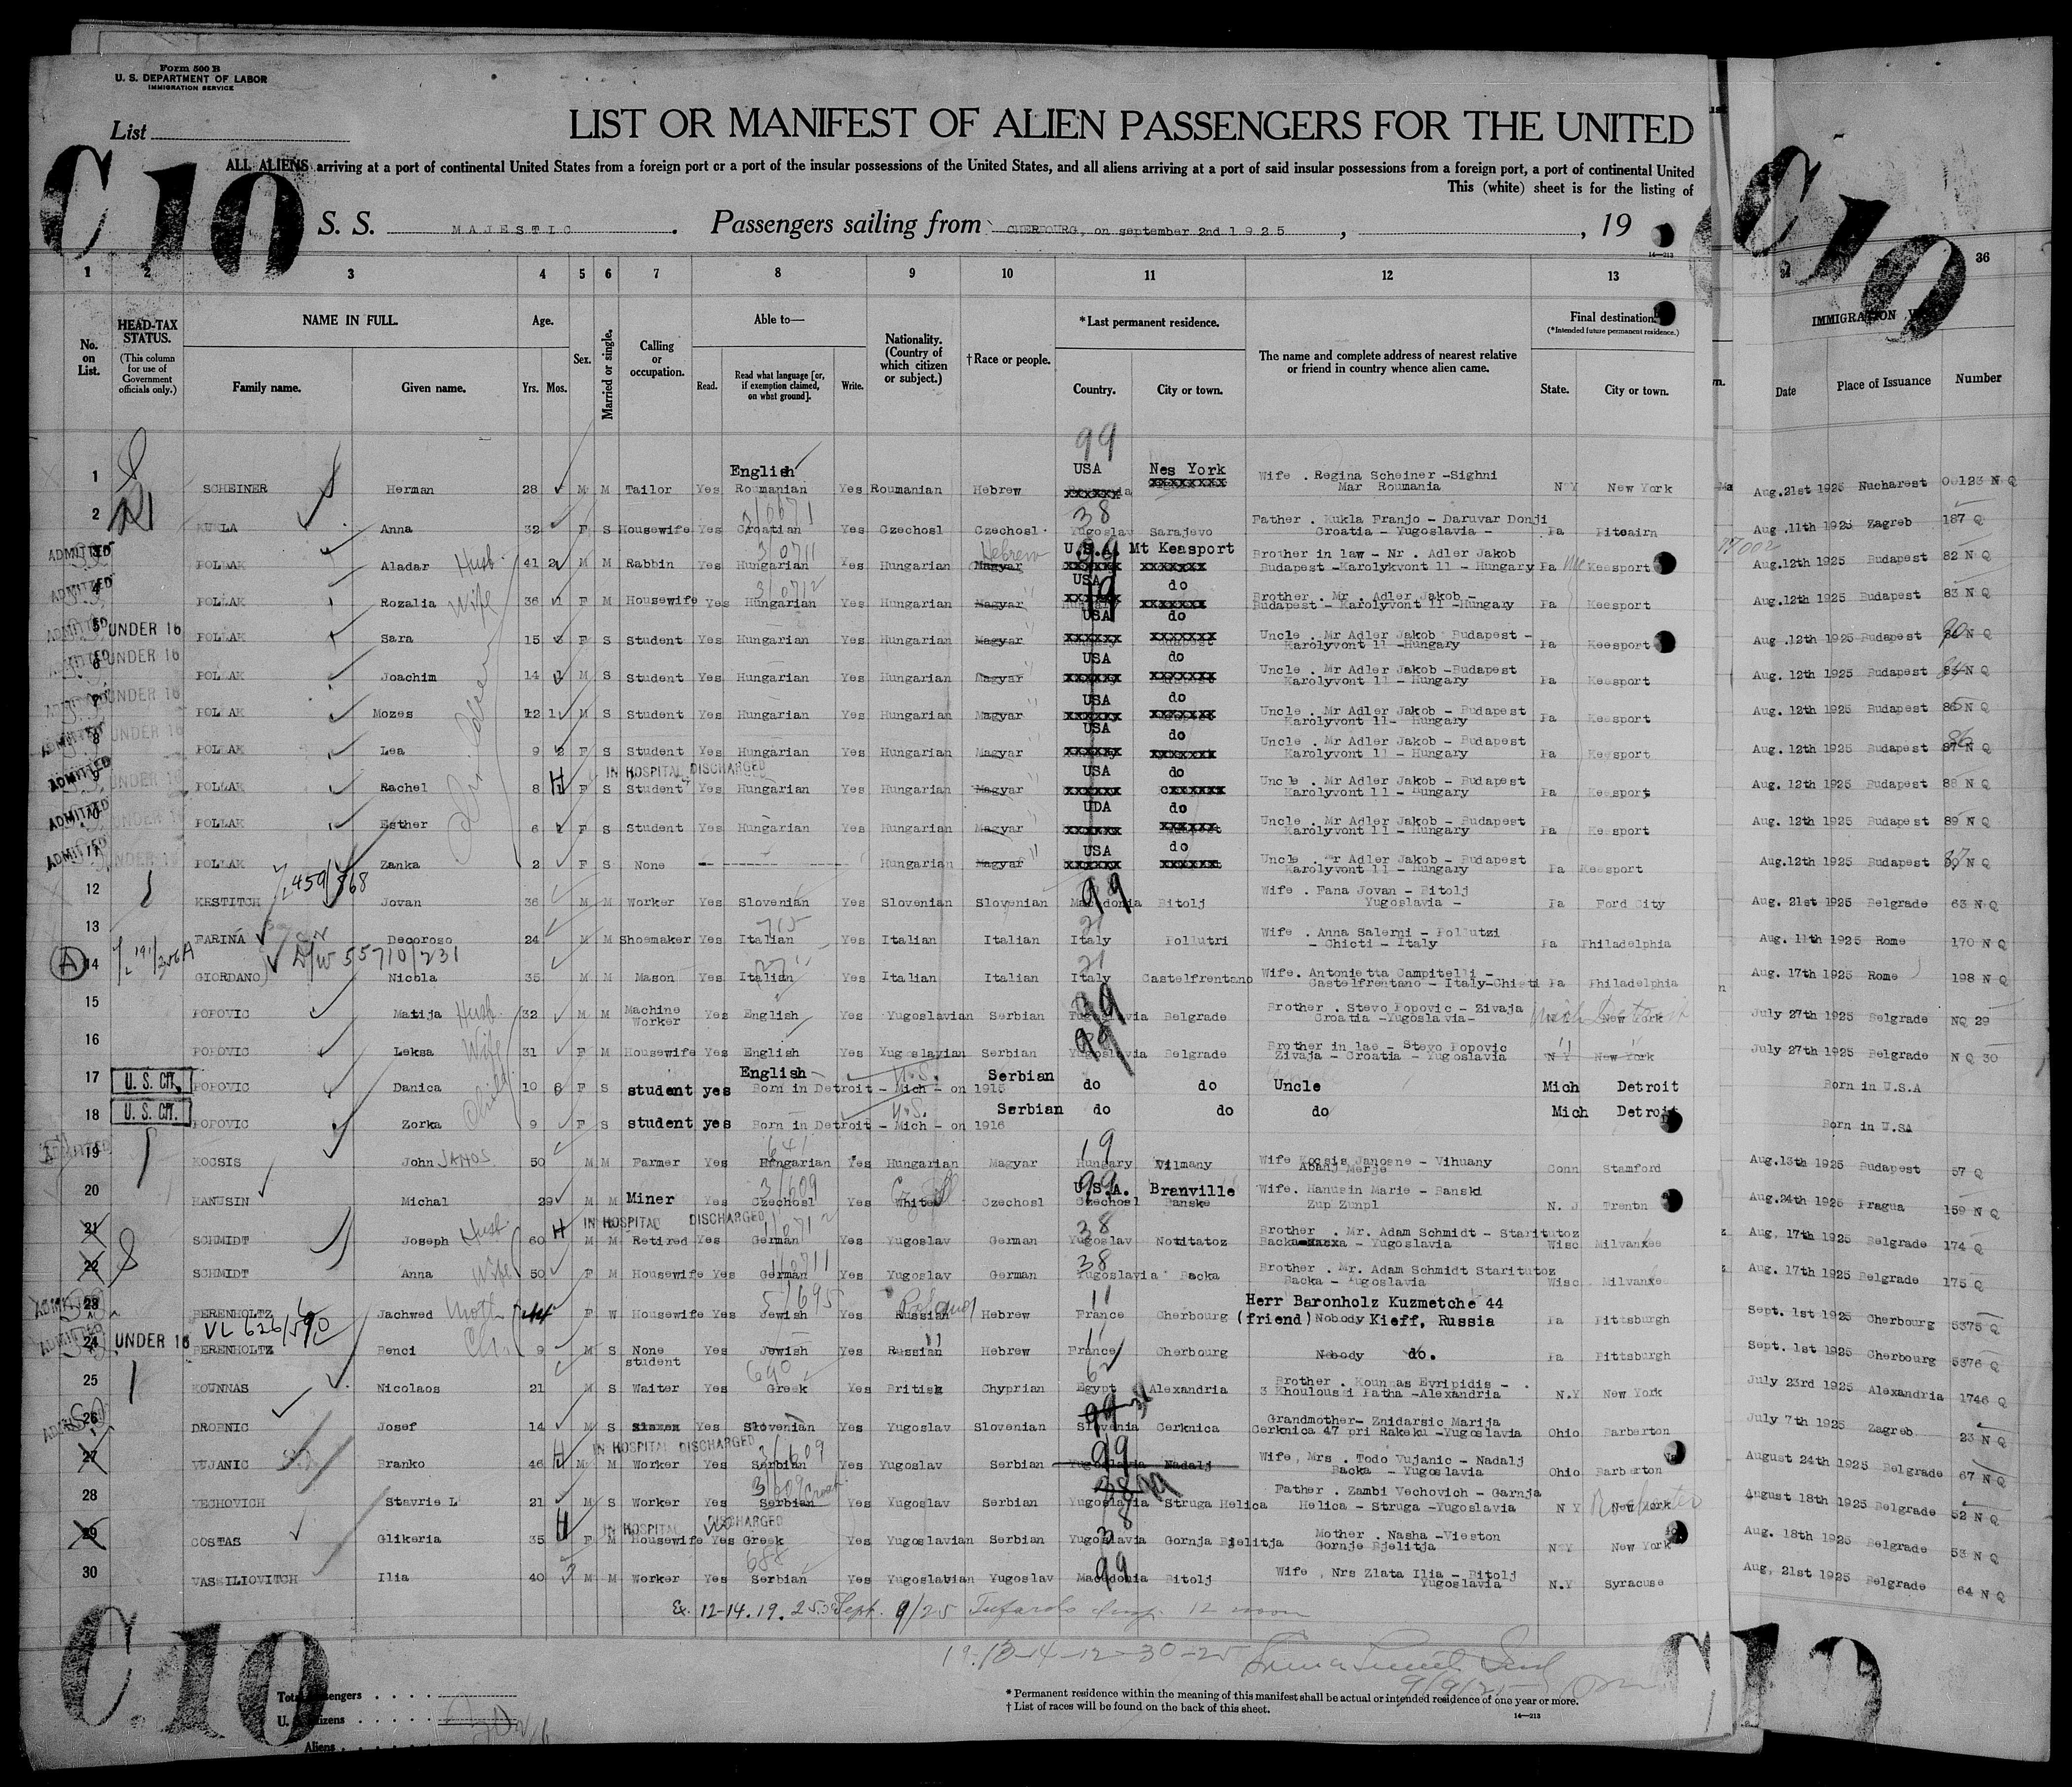 Form 500 B
U. S. DEPARTMENT OF LABOR
IMMIGRATION SERVICE
List
LIST OR MANIFEST OF ALIEN PASSENGERS FOR THE UNITED
ALL ALIENS arriving at a port of continental United States from a foreign port or a port of the insular possessions of the United States, and all aliens arriving at a port of said insular possessions from a foreign port, a port of continental United
This (white) sheet is for the listing of
C 10
C 10
S. S. MAJESTIC. Passengers sailing from CHERBOURG, on september 2nd 1925, , 19
1 2 3 4 5 6 7 8 9 10 11 12 13 36
No. on List.
HEAD-TAX STATUS.
(This column for use of Government officials only.)
NAME IN FULL.
Family name. Given name.
Age.
Yrs. Mos.
Sex.
Married or single.
Calling or occupation.
Able to—
Read. Read what language [or, if exemption claimed, on what ground]. Write.
Nationality. (Country of which citizen or subject.)
†Race or people.
*Last permanent residence.
Country. City or town.
The name and complete address of nearest relative or friend in country whence alien came.
Final destination.
(*Intended future permanent residence.)
State. City or town.
IMMIGRATION
Date Place of Issuance Number
99
English USA Nes York
1 SCHEINER Herman 28 M M Tailor Yes Roumanian Yes Roumanian Hebrew xxxxxx xxxxxxxx Wife . Regina Scheiner -Sighni Mar Roumania N Y New York Aug.21st 1925 Nucharest 00123 N Q
2 KUKLA Anna 32 F S Housewife Yes Croatian Yes Czechosl Czechosl Yugoslav Sarajevo Father . Kukla Franjo - Daruvar Donji Croatia - Yugoslavia - Pa Pitcairn Aug .11th 1925 Zagreb 187 Q
ADMITTED 3 POLLAK Aladar Husb. 41 2 M M Rabbin Yes Hungarian Yes Hungarian Magyar Hebrew U.S.A. Mt Keasport xxxxxx xxxxxxx Brother in law - Nr . Adler Jakob Budapest -Karolykvont 11 - Hungary Pa Keesport Aug.12th 1925 Budapest 82 N Q
ADMITTED 4 POLLAK Rozalia Wife 36 1 F M Housewife Yes Hungarian Yes Hungarian Magyar USA do xxxxxxx Brother . Mr . Adler Jakob - Budapest - Karolyvont 11 -Hungary Pa Keesport Aug.12th 1925 Budapest 83 N Q
ADMITTED 5 UNDER 16 POLLAK Sara 15 F S Student Yes Hungarian Yes Hungarian Magyar USA do xxxxxx xxxxxxx Uncle . Mr Adler Jakob Budapest - Karolyvont 11 -Hungary Pa Keesport Aug .12th 1925 Budapest 90 N Q
6 UNDER 16 POLLAK Joachim 14 M S Student Yes Hungarian Yes Hungarian Magyar USA do xxxxxx xxxxxxx Uncle . Mr Adler Jakob -Budapest Karolyvont 11 - Hungary Pa Keesport Aug. 12th 1925 Budapest 84 N Q
7 UNDER 16 POLLAK Mozes 12 M S Student Yes Hungarian Yes Hungarian Magyar USA do xxxxxx xxxxxxx Uncle . Mr Adler Jakob - Budapest Karolyvont 11- Hungary Pa Keesport Aug. 12th 1925 Budapest 85 N Q
ADMITTED 8 UNDER 16 POLLAK Lea 9 F S Student Yes Hungarian Yes Hungarian Magyar USA do xxxxxx xxxxxxx Uncle . Mr Adler Jakob - Budapest Karolyvont 11 - Hungary Pa Keesport Aug. 12th 1925 Budapest 86 N Q
IN HOSPITAL DISCHARGED
ADMITTED 9 UNDER 16 POLLAK Rachel 8 H F S Student Yes Hungarian Yes Hungarian Magyar USA do xxxxxx cxxxxxx Uncle . Mr Adler Jakob - Budapest Karolyvont 11 - Hungary Pa Keesport Aug. 12th 1925 Budapest 88 N Q
ADMITTED 10 UNDER 16 POLLAK Esther 6 F S Student Yes Hungarian Yes Hungarian Magyar UDA do xxxxxx xxxxxxx Uncle . Mr Adler Jakob - Budapest Karolyvont 11 - Hungary Pa Keesport Aug. 12th 1925 Budapest 89 N Q
ADMITTED 11 UNDER 16 POLLAK Zanka 2 F S None Hungarian Magyar USA do xxxxxx xxxxxxx Uncle . Mr Adler Jakob - Budapest Karolyvont 11 - Hungary Pa Keesport Aug.12th 1925 Budapest 87 N Q
Children
12 KESTITCH Jovan 36 M M Worker Yes Slovenian Yes Slovenian Slovenian Macedonia Bitolj 99 Wife . Fana Jovan - Bitolj Yugoslavia - Pa Ford City Aug. 21st 1925 Belgrade 63 N Q
13 FARINA Decoroso 24 M M Shoemaker Yes Italian Yes Italian Italian Italy Pollutri Wife . Anna Salerni - Pollutzi - Chicti - Italy Pa Philadelphia Aug. 11th 1925 Rome 170 N Q
A 14 GIORDANO Nicola 35 M M Mason Yes Italian Yes Italian Italian Italy Castelfrentano Wife. Antonietta Campitelli - Castelfrentano - Italy-Chieti Pa Philadelphia Aug. 17th 1925 Rome 198 N Q
15 POPOVIC Matija Husb. 32 M M Machine Worker Yes English Yes Yugoslavian Serbian Yugoslavia Belgrade Brother . Stevo Popovic - Zivaja Croatia -Yugoslavia- New York July 27th 1925 Belgrade NQ 29
16 POPOVIC Leksa Wife 31 F M Housewife Yes English Yes Yugoslavian Serbian Yugoslavia Belgrade Brother in lae - Stevo Popovic Zivaja - Croatia - Yugoslavia N Y New York July 27th 1925 Belgrade N Q 30
17 U. S. CIT. POPOVIC Danica 10 6 F S student yes English Born in Detroit - Mich - on 1915 Serbian do do Uncle Mich Detroit Born in U.S.A
18 U. S. CIT. POPOVIC Zorka 9 F S student yes Born in Detroit - Mich - on 1916 U.S. Serbian do do do Mich Detroit Born in U.SA
19 KOCSIS John JANOS 50 M M Farmer Yes Hungarian Yes Hungarian Magyar Hungary Vilmany 19 Wife Kocsis Janosne - Vihuany Abanj Merge Conn Stamford Aug.13th 1925 Budapest 57 Q
20 HANUSIN Michal 29 M M Miner Yes Czechosl Yes White Czechosl U.S.A. Branville Czechosl Banske Wife. Hanusin Marie - Banski Zup Zunpl N. J Trentn Aug.24th 1925 Pragua 159 N Q
IN HOSPITAL DISCHARGED
21 SCHMIDT Joseph Husb. 60 H M M Retired Yes German Yes Yugoslav German Yugoslav Notitatoz 38 Brother . Mr. Adam Schmidt - Staritutoz Backa - Yugoslavia Wisc Milvankee Aug, 17th 1925 Belgrade 174 Q
22 SCHMIDT Anna Wife 50 F M Housewife Yes German Yes Yugoslav German Yugoslavia Backa 38 Brother . Mr. Adam Schmidt Staritutoz Backa - Yugoslavia Wisc Milvankee Aug. 17th 1925 Belgrade 175 Q
23 BERENHOLTZ Jachwed 44 F W Housewife Yes Jewish Yes Russian Poland Hebrew France Cherbourg Herr Baronholz Kuzmetche 44 (friend) Nobody Kieff, Russia Pa Pittsburgh Sept. 1st 1925 Cherbourg 5375 Q
24 UNDER 16 BERENHOLTZ Benci 9 M S None student Yes Jewish Yes Russian Hebrew France Cherbourg Nobody do. Pa Pittsburgh Sept. 1st 1925 Cherbourg 5376 Q
25 KOUNNAS Nicolaos 21 M S Waiter Yes Greek Yes British Chyprian Egypt Alexandria Brother . Kounnas Evripidis - 3 Khoulouski Patha -Alexandria N.Y New York July 23rd 1925 Alexandria 1746 Q
26 DROBNIC Josef 14 M S Yes Slovenian Yes Yugoslav Slovenian Slovenia Cerknica Grandmother- Znidarsic Marija Cerknica 47 pri Rakeku -Yugoslavia Ohio Barberton July 7th 1925 Zagreb 23 N Q
IN HOSPITAL DISCHARGED
27 VUJANIC Branko 46 H M M Worker Yes Serbian Yes Yugoslav Serbian Yugoslavia Nadalj 99 Wife , Mrs . Todo Vujanic - Nadalj Backa - Yugoslavia Ohio Barberton August 24th 1925 Belgrade 67 N Q
28 VECHOVICH Stavrie L 21 M S Worker Yes Serbian Yes Yugoslav Serbian Yugoslavia Struga Helica Father . Zambi Vechovich - Garnja Helica - Struga -Yugoslavia N Y New York August 18th 1925 Belgrade 52 N Q
IN HOSPITAL DISCHARGED
29 COSTAS Glikeria 35 H F M Housewife Yes Greek Yes Yugoslavian Serbian Yugoslavia Gornja Bjelitja Mother . Nasha -Vieston Gornje Bjelitja N Y New York Aug. 18th 1925 Belgrade 53 N Q
30 VASKILIOVITCH Ilia 40 M M Worker Yes Serbian Yes Yugoslavian Yugoslav Macedonia Bitolj 99 Wife , Nrs Zlata Ilia - Bitolj Yugoslavia N.Y Syracuse Aug, 21st 1925 Belgrade 64 N Q
12-14.19. 25 Sept. 9/25 12 noon
C.10
Total Passengers
U. S. Citizens
Aliens
* Permanent residence within the meaning of this manifest shall be actual or intended residence of one year or more.
† List of races will be found on the back of this sheet.
14—213